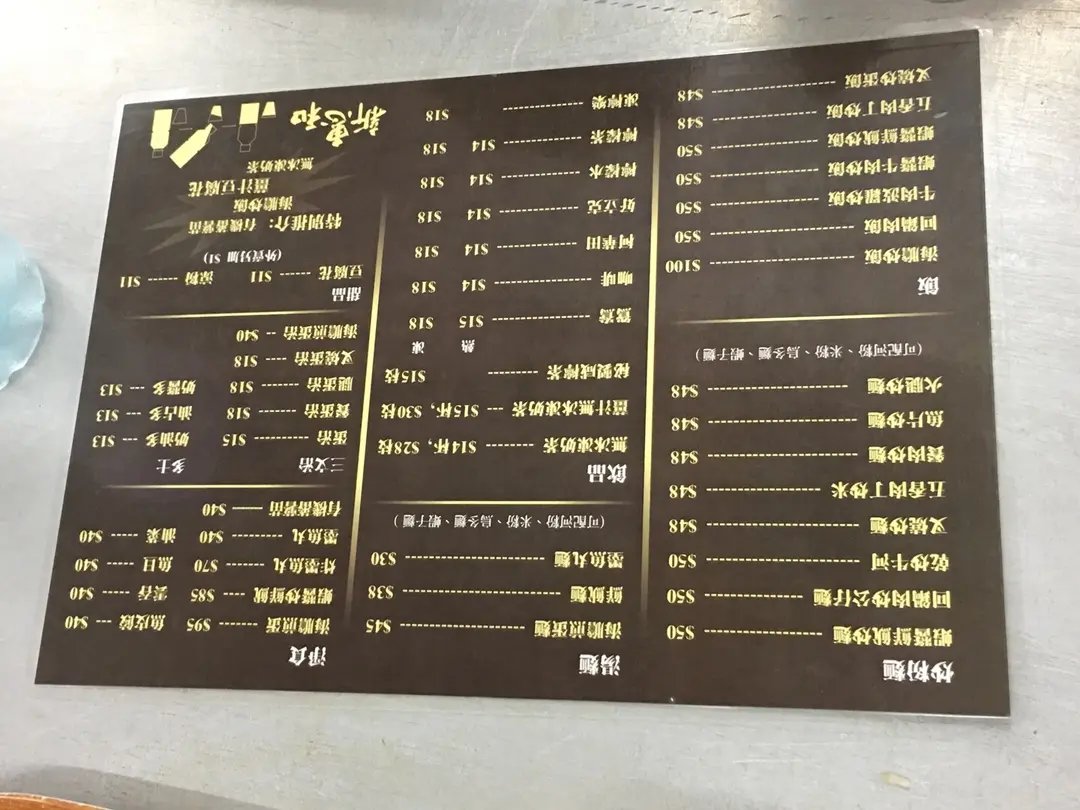 炒粉麵
蝦醬鮮魷炒麵 ---------- $50
回鍋肉炒公仔麵 ---------- $50
乾炒牛河 ---------- $50
叉燒炒麵 ---------- $48
五香肉丁炒米 ---------- $48
餐肉炒麵 ---------- $48
魚片炒麵 ---------- $48
火腿炒麵 ---------- $48
(可配河粉、米粉、烏冬麵、蝦子麵)
飯
海膽炒飯 ---------- $100
回鍋肉飯 ---------- $50
牛肉波蘿炒飯 ---------- $50
蝦醬牛肉炒飯 ---------- $50
蝦醬鮮魷炒飯 ---------- $50
五香肉丁炒飯 ---------- $48
叉燒炒蛋飯 ---------- $48
湯麵
海膽煎蛋麵 ---------- $45
鮮魷麵 ---------- $38
墨魚丸麵 ---------- $30
(可配河粉、米粉、烏冬麵、蝦子麵)
飲品
無冰凍奶茶 ------- $14杯, $28枝
薑汁無冰凍奶茶 --- $15杯, $30枝
秘製咸檸茶 ---------- $15枝
熱 凍
鴛鴦 ---------- $15 $18
咖啡 ---------- $14 $18
阿華田 ---------- $14 $18
好立克 ---------- $14 $18
檸檬水 ---------- $14 $18
檸檬茶 ---------- $14 $18
凍檸樂 ---------- $18
淨食
海膽煎蛋 ----- $95 魚皮餃 --- $40
蝦醬炒鮮魷 ---- $85 雲吞 ---- $40
炸墨魚丸 ------- $70 魚旦 ----- $40
墨魚丸 --------- $40 油菜 ----- $40
有機番薯苗 —— $40
三文治 多士
蛋治 ----------- $15 奶油多 --- $13
餐蛋治 -------- $18 油占多 --- $13
腿蛋治 -------- $18 奶醬多 --- $13
叉燒蛋治 ---- $18
海膽煎蛋治 -- $40
甜品
豆腐花 ------ $11 涼粉 ------- $11
(外賣另加 $1)
特別推介: 有機番薯苗
海膽炒飯
薑汁豆腐花
無冰凍奶茶
新惠和